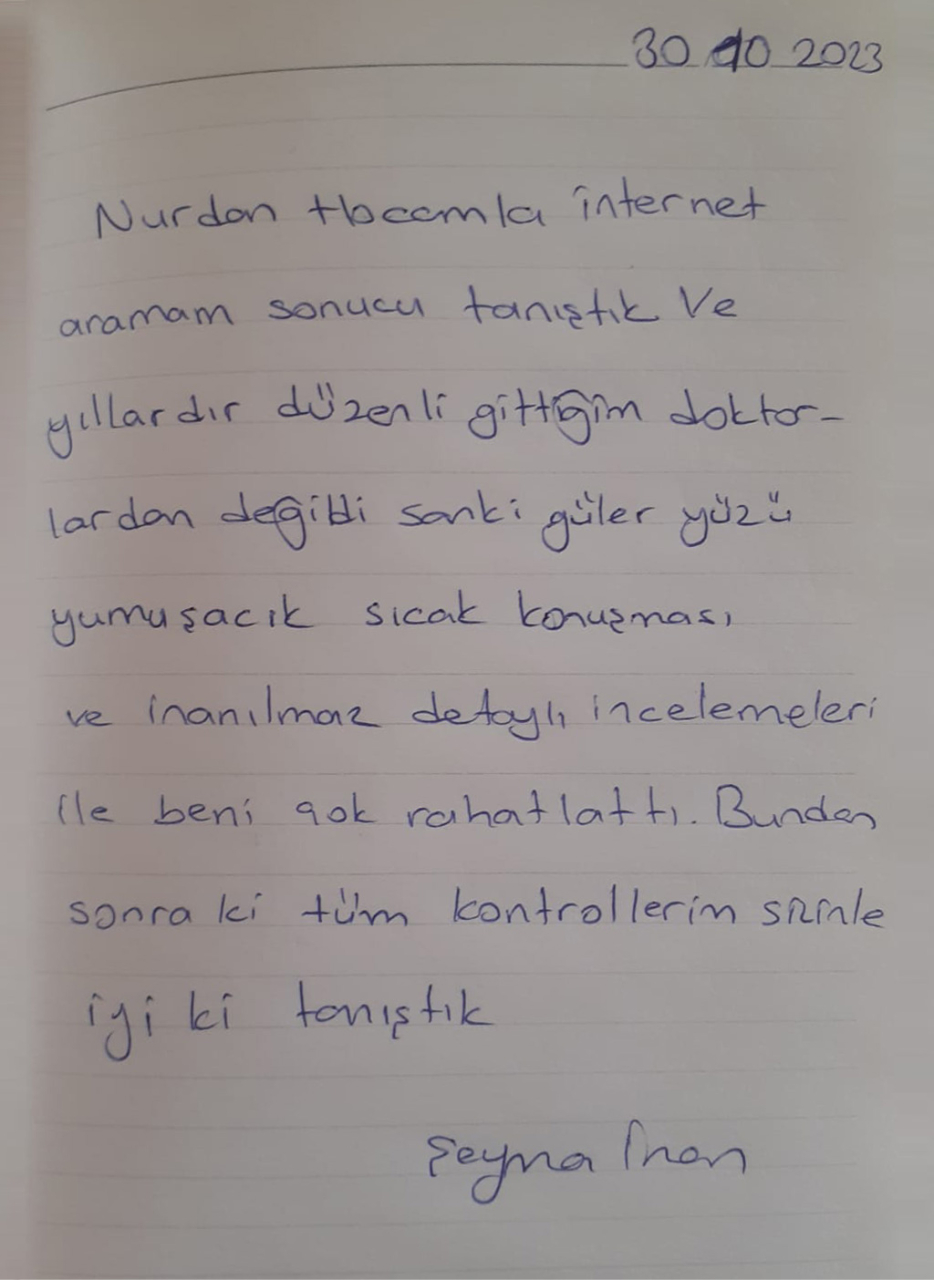 30 10 2023
Nurdan Hocamla internet
aramam sonucu tanıştık Ve
yıllardır düzenli gittiğim doktor-
lardan değildi sanki güler yüzü
yumuşacık sıcak konuşması
ve inanılmaz detaylı incelemeleri
ile beni çok rahatlattı. Bundan
sonra ki tüm kontrollerim sizinle
iyi ki tanıştık
Şeyma İnan